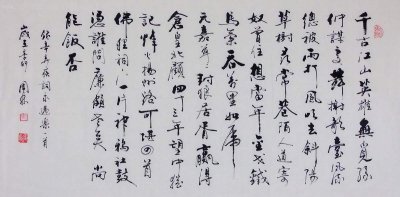 千古江山英雄無覓孫
仲謀處舞榭歌臺風流
總被雨打風吹去斜陽
草樹尋常巷陌人道寄
奴曾住想當年金戈鐵
馬氣吞萬里如虎
元嘉草草封狼居胥贏得
倉皇北顧四十三年望中猶
記烽火揚州路可堪回首
佛狸祠下一片神鴉社鼓
憑誰問廉頗老矣尚
能飯否
辛棄疾詞永遇樂一首
歲